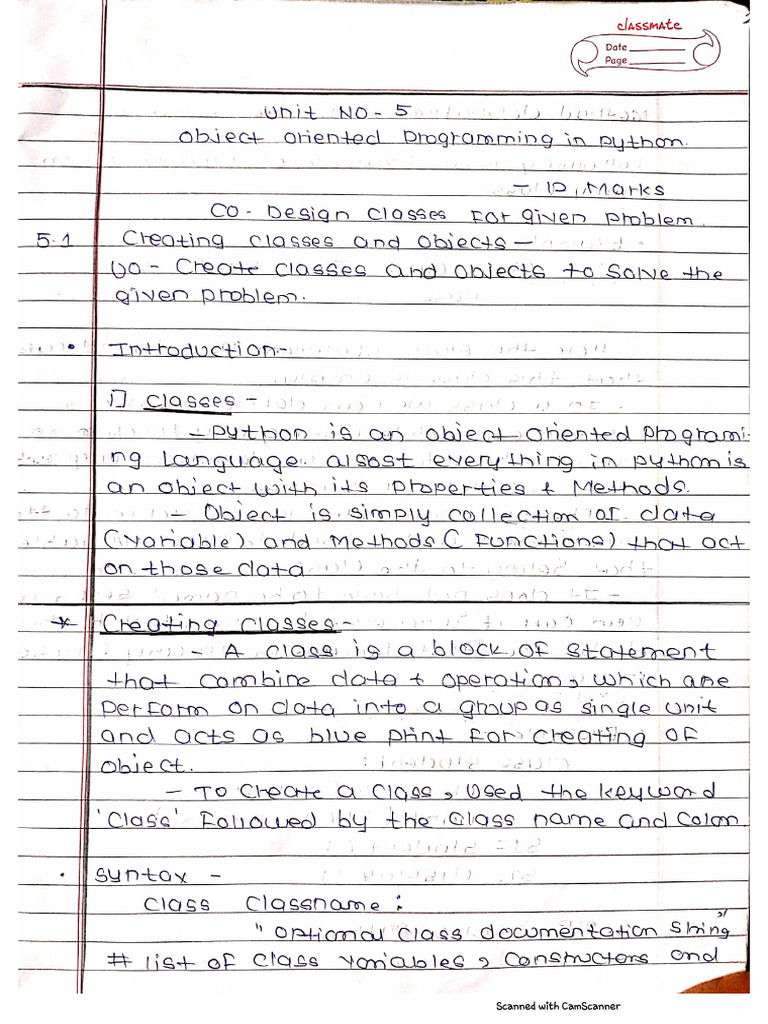 classmate
Date
Page
Unit No - 5
Object oriented programming in python.
- 12 Marks
CO - Design classes for given problem.
5.1 Creating classes and objects -
UO - Create classes and objects to solve the
given problem.
• Introduction -
i] classes -
- python is an object oriented programi-
ng language. alsost everything in python is
an object with its properties & Methods.
- Object is simply collection of data
(variable) and methods ( functions) that act
on those data
* Creating classes -
- A class is a block of statement
that combine data & operation, which are
perform on data into a group as single unit
and acts as blue print for creating of
object.
- To create a class, used the keyword
'class' followed by the class name and colon
• syntax -
class classname :
" optional class documentation string
# list of class variables, constructors and
Scanned with CamScanner